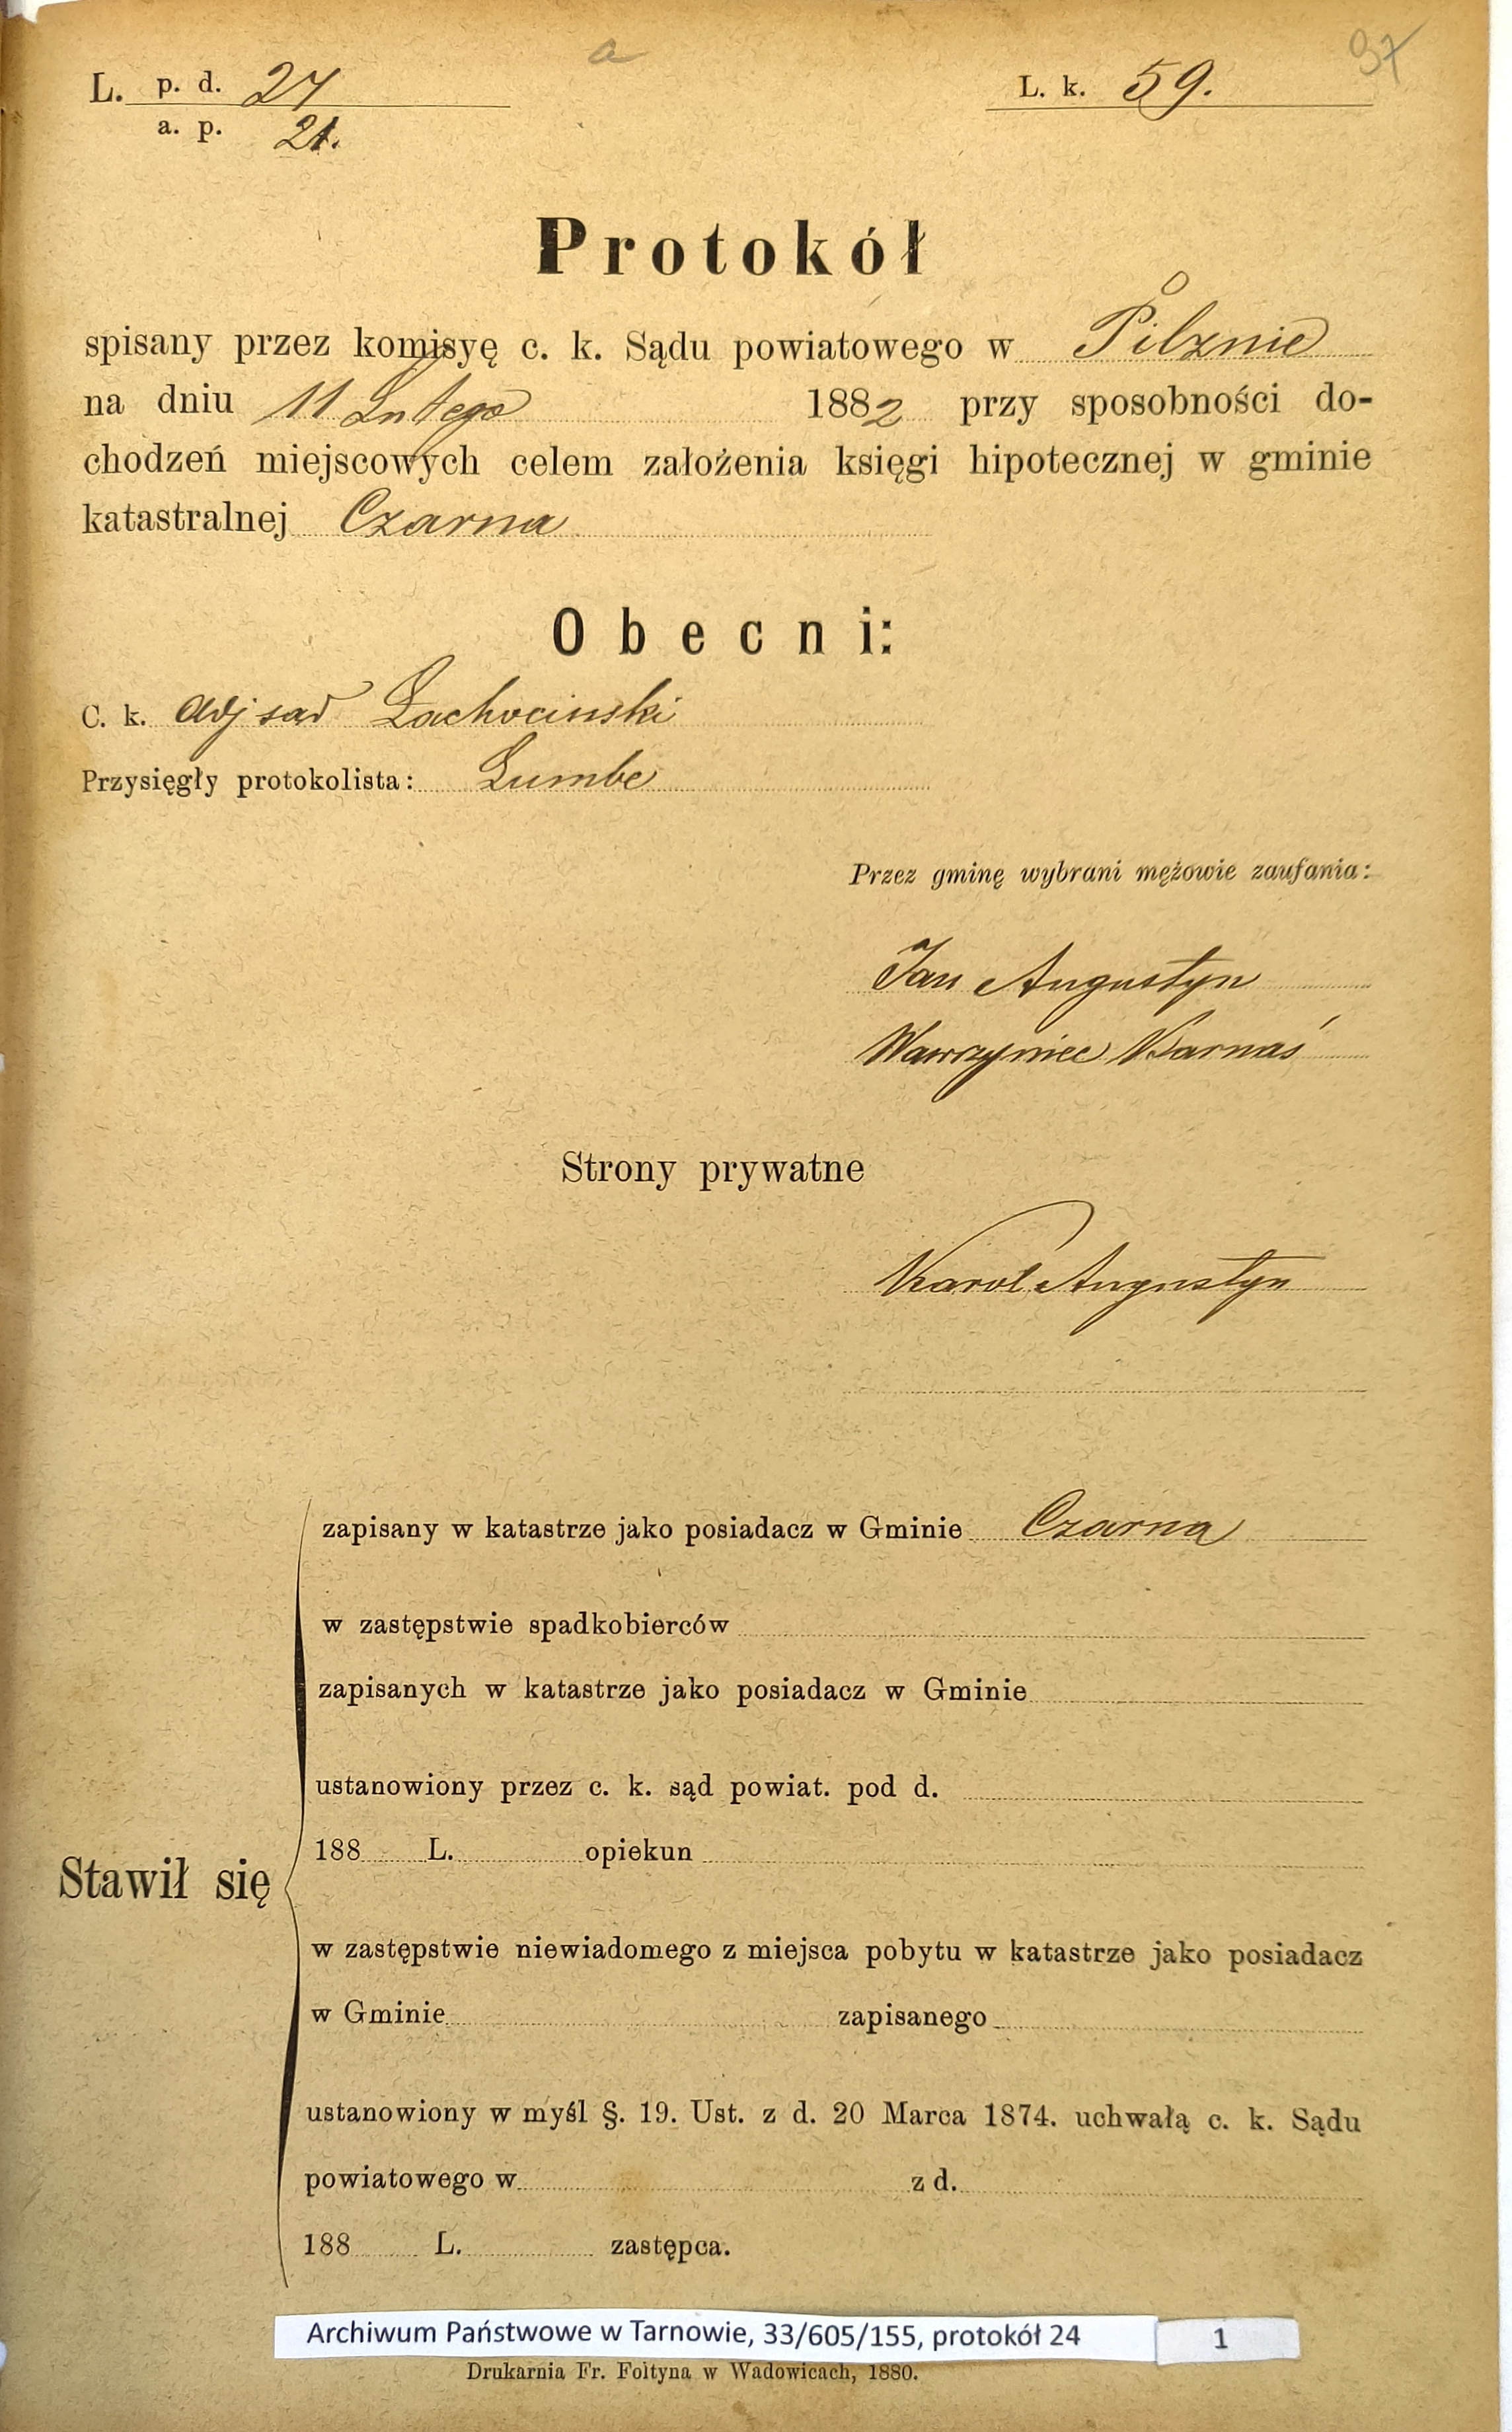 a
97
L. p. d. 24
L. k. 59.
a. p. 21.
Protokół
spisany przez komisyę c. k. Sądu powiatowego w Pilznie
na dniu 11 Lutego 1882 przy sposobności do-
chodzeń miejscowych celem założenia księgi hipotecznej w gminie
katastralnej Czarna
Obecni:
C. k. adj sąd Łachociński
Przysięgły protokolista: Lumbe
Przez gminę wybrani mężowie zaufania:
Jan Augustyn
Wawrzyniec Karnaś
Strony prywatne
Karol Augustyn
zapisany w katastrze jako posiadacz w Gminie Czarna
w zastępstwie spadkobierców
zapisanych w katastrze jako posiadacz w Gminie
ustanowiony przez c. k. sąd powiat. pod d.
188 L. opiekun
Stawił się
w zastępstwie niewiadomego z miejsca pobytu w katastrze jako posiadacz
w Gminie zapisanego
ustanowiony w myśl §. 19. Ust. z d. 20 Marca 1874. uchwałą c. k. Sądu
powiatowego w z d.
188 L. zastępca.
Archiwum Państwowe w Tarnowie, 33/605/155, protokół 24 1
Drukarnia Fr. Foltyna w Wadowicach, 1880.